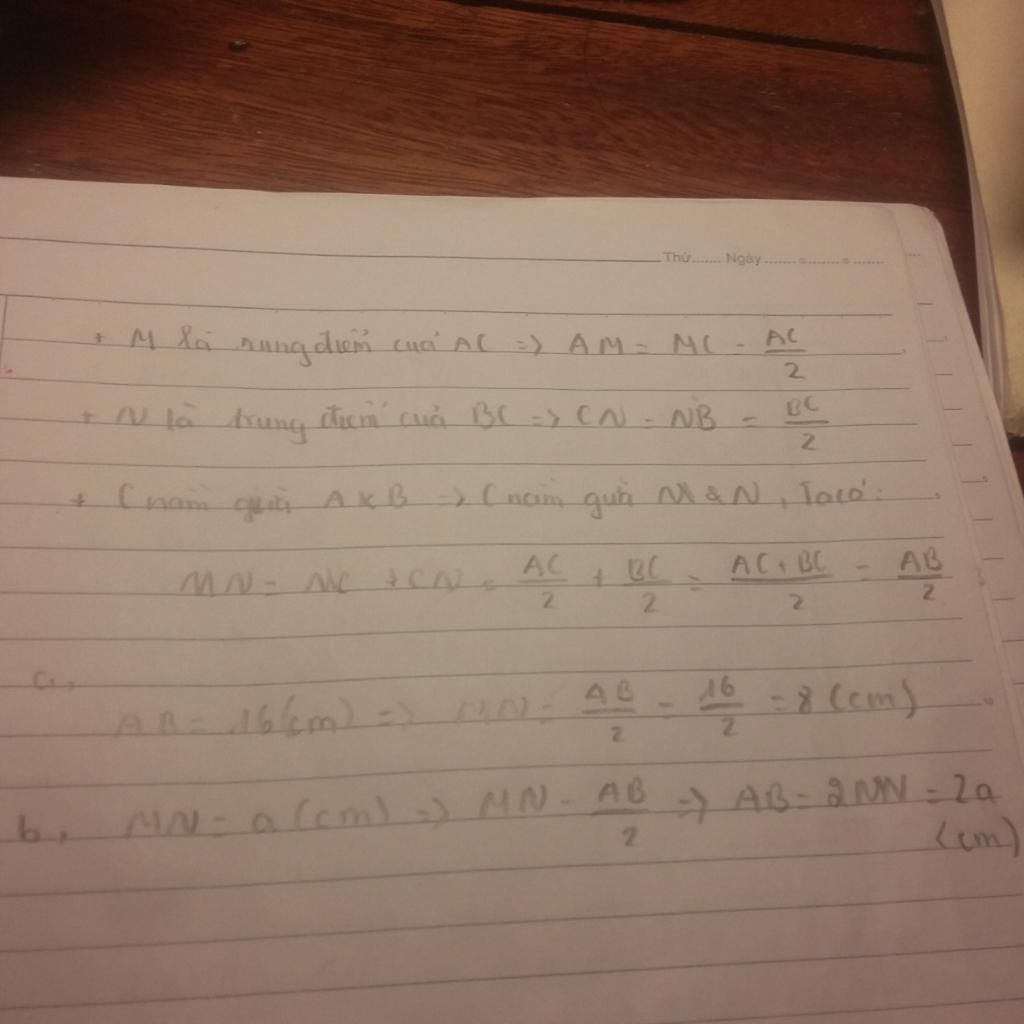 Thứ....... Ngày.......
+ M là trung điểm của AC => AM = MC = AC/2
+ N là trung điểm của BC => CN = NB = BC/2
+ C nằm giữa A & B => C nằm giữa M & N, Ta có:
MN = MC + CN = AC/2 + BC/2 = (AC + BC)/2 = AB/2
a,
AB = 16(cm) => MN = AB/2 = 16/2 = 8 (cm)
b, MN = a (cm) => MN = AB/2 => AB = 2MN = 2a
(cm)